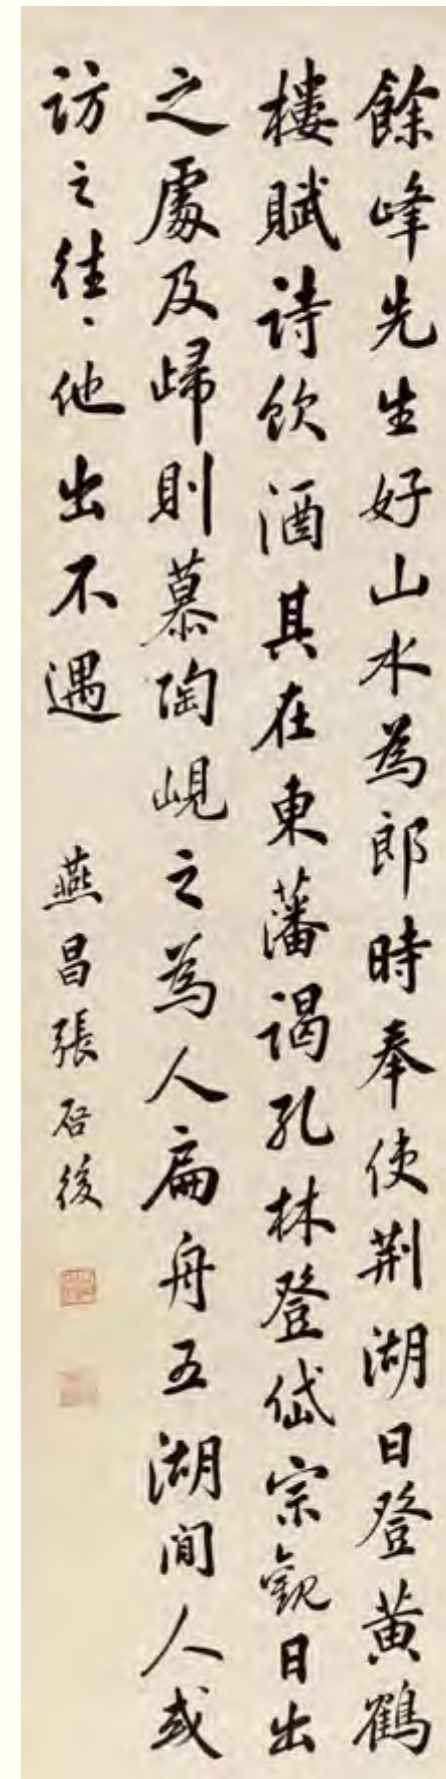 餘峰先生好山水為郎時奉使荆湖日登黄鶴
樓賦詩飲酒其在東藩謁孔林登岱宗觀日出
之處及歸則慕陶峴之為人扁舟五湖間人或
訪之往々他出不遇
燕昌張啓後